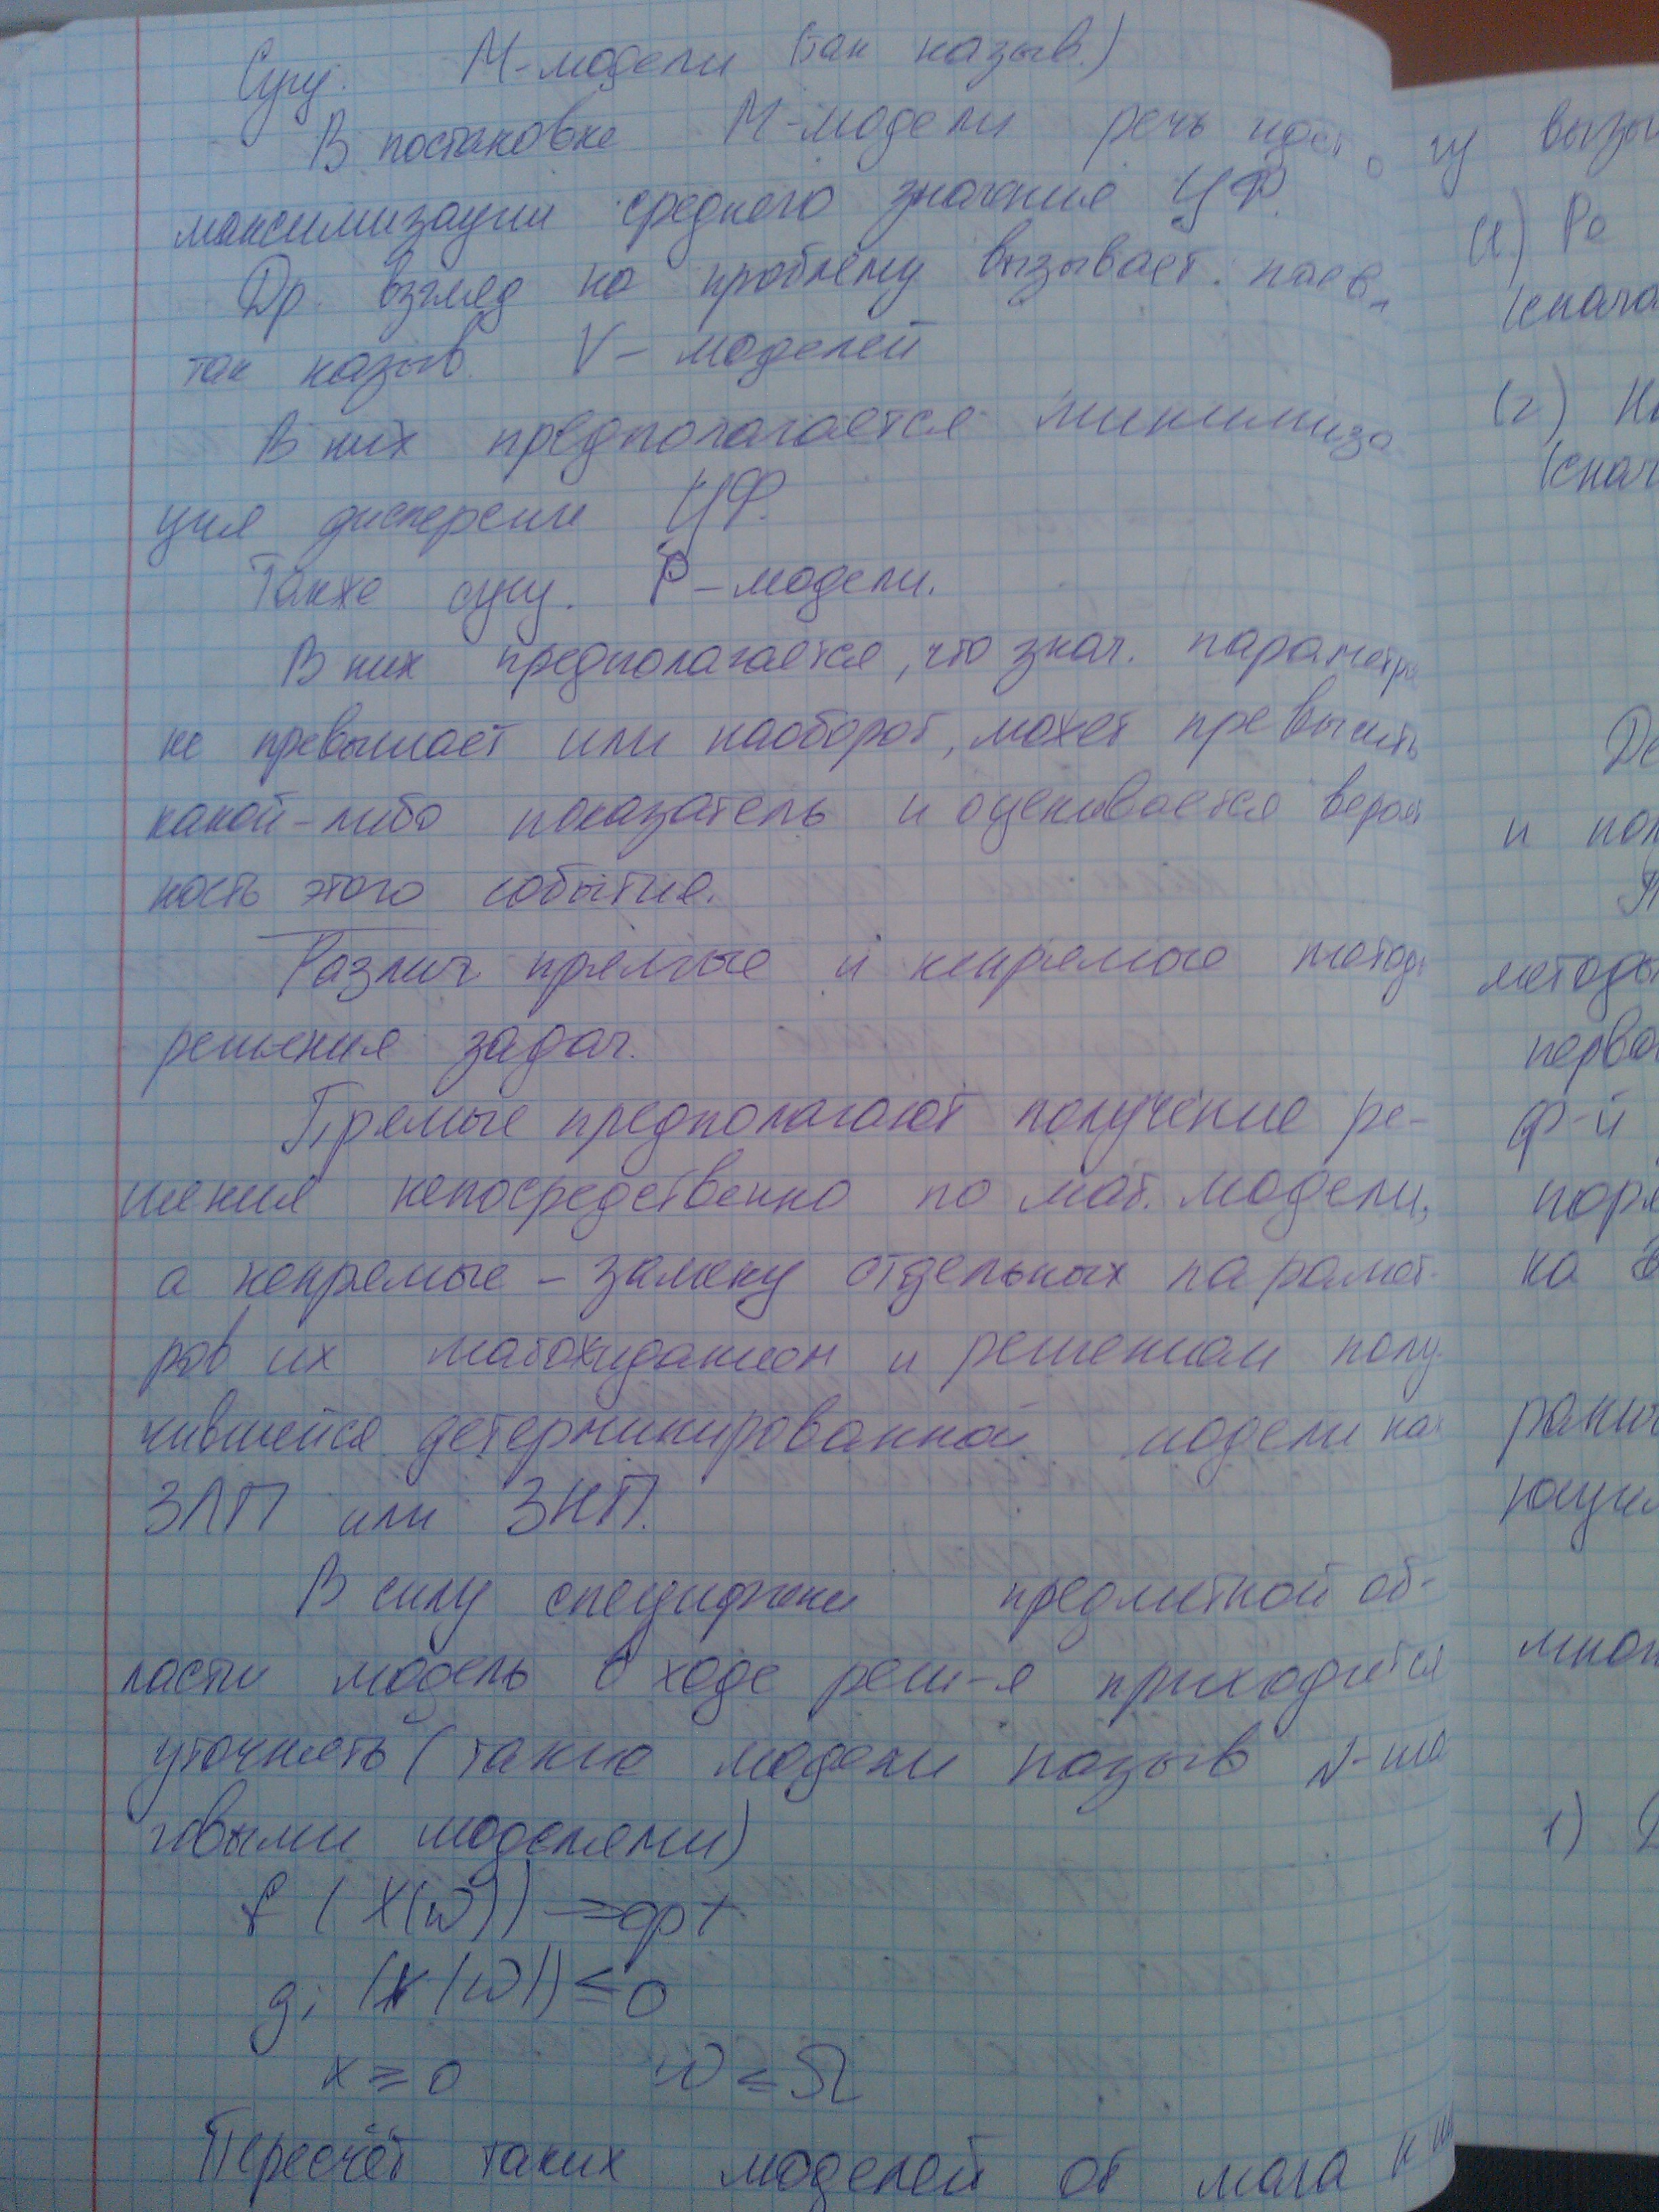 Сущ. М-модели (так назыв.)
В постановке М-модели речь идет о
максимизации среднего значения ЦФ.
Др. взгляд на проблему вызывает
так назыв. V-моделей
В них предполагается минимиза
ция дисперсии ЦФ.
Также сущ. Р-модели.
В них предполагается, что знач. параметра
не превышает или наоборот, может превысить
какой-либо показатель и оценивается вероят
ность этого события.
Различ. прямые и непрямые методы
решения задач.
Прямые предполагают получение ре-
шения непосредственно по мат. модели,
а непрямые - замену отдельных парамет-
ров их матожиданием и решением полу
чившейся детерминированной модели как
ЗЛП или ЗНП.
В силу специфики предметной об-
ласти модель в ходе реш-я приходится
уточнять (такие модели назыв N-ша
говыми моделями)
f (X(ω)) → opt
gi (x(ω)) ≤ 0
x ≥ 0 ω ≤ Ω
Пересчёт таких моделей от шага к
вызы
(1) Ре
(снача
(2) На
(снач
и пол
методы
перво
ф-й
поря
на
1)